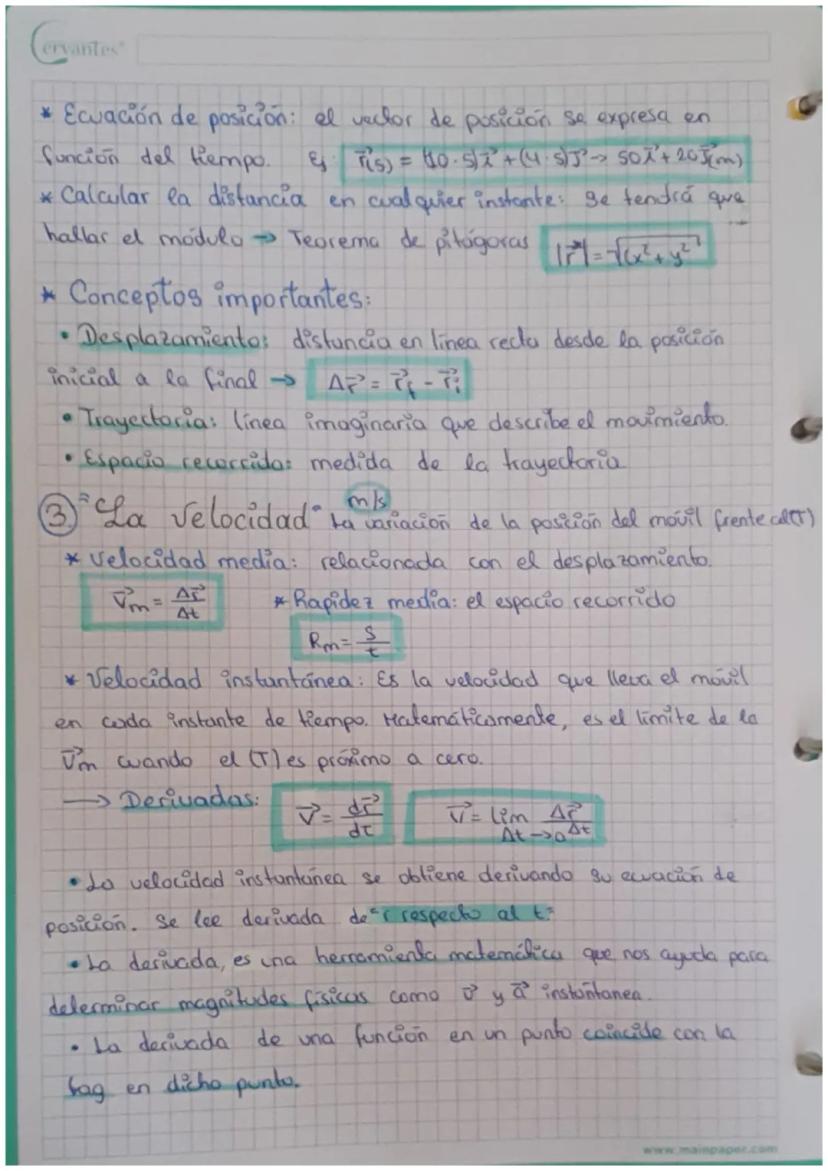 Cervantes
* Ecuación de posición: el vector de posición se expresa en
función del tiempo. Ej: r⃗(5) = (10·5)i⃗ + (4·5)j⃗ → 50i⃗ + 20j⃗(m)
* Calcular la distancia en cualquier instante: se tendrá que
hallar el módulo → Teorema de pitágoras |r⃗| = √(x² + y²)
* Conceptos importantes:
• Desplazamiento: distancia en línea recta desde la posición
inicial a la final → Δr⃗ = r⃗f - r⃗i
• Trayectoria: línea imaginaria que describe el movimiento.
• Espacio recorrido: medida de la trayectoria
③ "La velocidad" m/s La variación de la posición del móvil frente al(T)
* Velocidad media: relacionada con el desplazamiento.
v⃗m = Δr⃗/Δt * Rapidez media: el espacio recorrido
Rm = s/t
* Velocidad instantánea: Es la velocidad que lleva el móvil
en cada instante de tiempo. Matemáticamente, es el límite de la
v⃗m cuando el (T) es próximo a cero.
→ Derivadas: v⃗ = dr⃗/dt v⃗ = lim Δt→0 Δr⃗/Δt
• La velocidad instantánea se obtiene derivando su ecuación de
posición. Se lee derivada de "r respecto al t"
• La derivada, es una herramienta matemática que nos ayuda para
determinar magnitudes físicas como v⃗ y a⃗ instantánea.
• La derivada de una función en un punto coincide con la
tag en dicho punto.
www.mainpaper.com